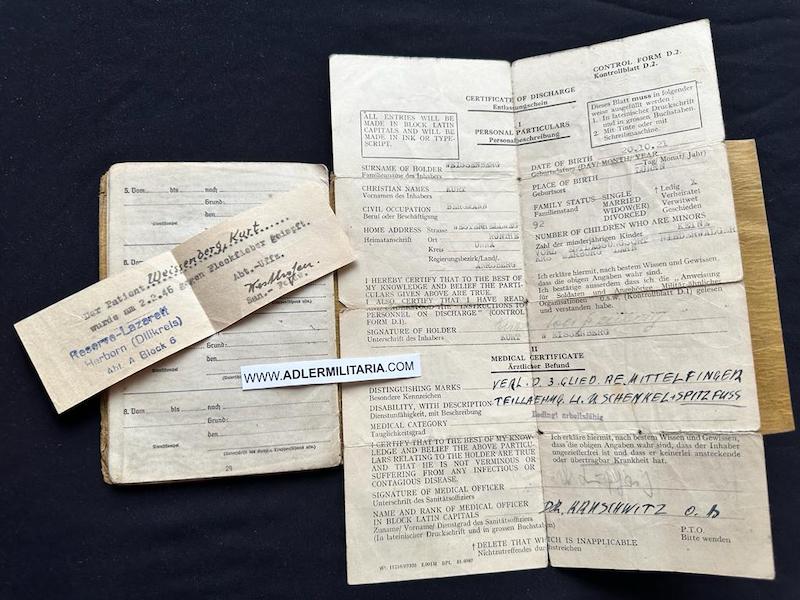 5. Vom bis nach
Grund:
den
Dienststempel
Der Patient Weissenberg, Kurt
wurde am 2.2.45 gegen Fleckfieber geimpft.
Abt.-Uffz.
San.-
Reserve-Lazarett
Herborn (Dillkreis)
Abt. A Block 6
Grund:
den
8. Vom bis nach
Grund:
den
Dienststempel
29
WWW.ADLERMILITARIA.COM
CONTROL FORM D.2.
Kontrollblatt D.2.
CERTIFICATE OF DISCHARGE
Entlassungschein
ALL ENTRIES WILL BE
MADE IN BLOCK LATIN
CAPITALS AND WILL BE
MADE IN INK OR TYPE-
SCRIPT.
Dieses Blatt muss in folgender
weise ausgefüllt werden:
1. In lateinischer Druckschrift
und in grossen Buchstaben.
2. Mit Tinte oder mit
Schreibmaschine.
I
PERSONAL PARTICULARS
Personalbeschreibung
SURNAME OF HOLDER WEISSENBERG
Familienname des Inhabers
CHRISTIAN NAMES KURT
Vornamen des Inhabers
CIVIL OCCUPATION BERGMANN
Beruf oder Beschäftigung
HOME ADDRESS Strasse
Heimatanschrift Ort
Kreis UNNA
Regierungsbezirk/Land/.
ARNSBERG
DATE OF BIRTH 20.10.21
Geburtsdatum (DAY/MONTH/YEAR Tag/Monat/Jahr)
PLACE OF BIRTH
Geburtsort
FAMILY STATUS—SINGLE † Ledig X
Familienstand MARRIED Verheiratet
WIDOW(ER) Verwitwet
DIVORCED Geschieden
92
NUMBER OF CHILDREN WHO ARE MINORS
Zahl der minderjährigen Kinder KEINE
I HEREBY CERTIFY THAT TO THE BEST OF
MY KNOWLEDGE AND BELIEF THE PARTI-
CULARS GIVEN ABOVE ARE TRUE.
I ALSO CERTIFY THAT I HAVE READ
PERSONNEL ON DISCHARGE" (CONTROL
FORM D.1).
SIGNATURE OF HOLDER
Unterschrift des Inhabers KURT WEISSENBERG
Ich erkläre hiermit, nach bestem Wissen und Gewissen,
dass die obigen Angaben wahr sind.
Ich bestätige ausserdem dass ich die „Anweisung
für Soldaten und Angehörige Militär-ähnlicher
Organisationen" u.s.w. (Kontrollblatt D.1) gelesen
und verstanden habe.
II
MEDICAL CERTIFICATE
Ärztlicher Befund
DISTINGUISHING MARKS VERL. D. 3. GLIED. RE. MITTELFINGER
Besondere Kennzeichen
DISABILITY, WITH DESCRIPTION TEILLAEHMG. LI. U. SCHENKEL + SPITZFUSS
Dienstunfähigkeit, mit Beschreibung
MEDICAL CATEGORY Bedingt arbeitsfähig
Tauglichkeitsgrad
I CERTIFY THAT TO THE BEST OF MY KNOW-
LEDGE AND BELIEF THE ABOVE PARTICU-
LARS RELATING TO THE HOLDER ARE TRUE
AND THAT HE IS NOT VERMINOUS OR
SUFFERING FROM ANY INFECTIOUS OR
CONTAGIOUS DISEASE.
Ich erkläre hiermit, nach bestem Wissen und Gewissen,
dass die obigen Angaben wahr sind, dass der Inhaber
ungezieferfrei ist und dass er keinerlei ansteckende
oder übertragbar Krankheit hat.
SIGNATURE OF MEDICAL OFFICER
Unterschrift des Sanitätsoffiziers
NAME AND RANK OF MEDICAL OFFICER
IN BLOCK LATIN CAPITALS
Zuname/Vorname/Dienstgrad des Sanitätsoffiziers
(In lateinischer Druckschrift und in grossen Buchstaben)
P.T.O.
Bitte wenden
† DELETE THAT WHICH IS INAPPLICABLE
Nichtzutreffendes durchstreichen